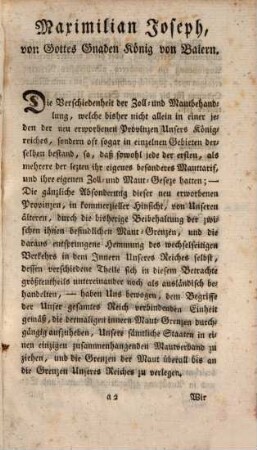 Maximilian Joseph,
von Gottes Gnaden König von Baiern.
Die Verschiedenheit der Zoll- und Mautbehand-
lung, welche bisher nicht allein in einer je-
den der neu erworbenen Provinzen Unsers König-
reiches, sondern oft sogar in einzelnen Gebieten der-
selben bestand, so, daß sowohl jede der ersten, als
mehrere der lezten ihr eigenes besonderes Mauttarif,
und ihre eigenen Zoll- und Maut-Geseze hatten; —
Die gänzliche Absonderung dieser neu erworbenen
Provinzen, in kommerzieller Hinsicht, von Unseren
älteren, durch die bisherige Beibehaltung der zwi-
schen ihnen befindlichen Maut-Grenzen, und die
daraus entspringene Hemmung des wechselseitigen
Verkehrs in dem Innern Unseres Reiches selbst,
dessen verschiedene Theile sich in diesem Betrachte
größtentheils untereinander noch als ausländisch be-
handelten, — haben Uns bewogen, dem Begriffe
der Unser gesamtes Reich verbindenden Einheit
gemäß, die dermaligen innern Maut-Grenzen durch-
gängig aufzuheben, Unsere sämtliche Staaten in ei-
nen einzigen zusammenhangenden Mautverband zu
ziehen, und die Grenzen der Maut überall bis an
die Grenzen Unseres Reiches zu verlegen.
a 2 Wir